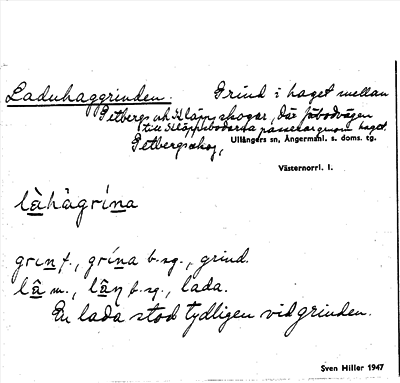 Laduhaggrinden. Grind i haget mellan
Getbergs och Kläpp skogar, där fäbodvägen
till Kläppsbodarna passerar genom haget.
Getbergsskog, Ullångers sn, Ångermanl. s. doms. tg.
Västernorrl. l.
là̱hàgrí̱na
gri̱n f., grí̱na b.sg., grind.
lâ̱ m., lâ̱n b.sg., lada.
En lada stod tydligen vid grinden.
Sven Hiller 1947